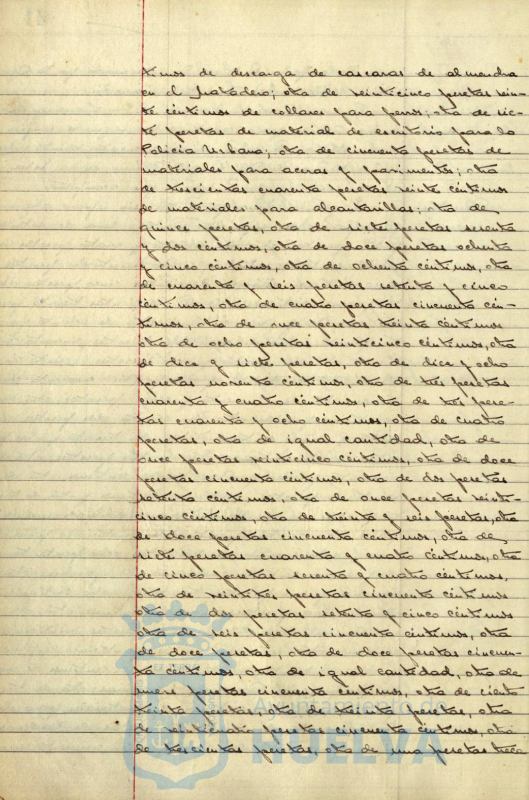 timos de descarga de cascaras de almendra
en el Matadero; otra de veinticinco pesetas vein-
te céntimos de collares para perros; otra de sie-
te pesetas de material de escritorio para la
Policía Urbana; otra de cincuenta pesetas de
materiales para aceras y pavimentos; otra
de trescientas cuarenta pesetas veinte céntimos
de materiales para alcantarillas; otra de
quince pesetas, otra de siete pesetas sesenta
y dos céntimos, otra de doce pesetas ochenta
y cinco céntimos, otra de ochenta céntimos, otra
de cuarenta y seis pesetas setenta y cinco
céntimos, otra de cuatro pesetas cincuenta cén-
timos, otra de once pesetas treinta céntimos
otra de ocho pesetas veinticinco céntimos, otra
de diez y siete pesetas, otra de diez y ocho
pesetas noventa céntimos, otra de tres pesetas
cuarenta y cuatro céntimos, otra de tres pese-
tas cuarenta y ocho céntimos, otra de cuatro
pesetas, otra de igual cantidad, otra de
once pesetas veinticinco céntimos, otra de doce
pesetas cincuenta céntimos, otra de dos pesetas
setenta céntimos, otra de once pesetas veinti-
cinco céntimos, otra de treinta y seis pesetas, otra
de doce pesetas cincuenta céntimos, otra de
siete pesetas cuarenta y cuatro céntimos, otra
de cinco pesetas sesenta y cuatro céntimos,
otra de veintitres pesetas cincuenta céntimos
otra de dos pesetas setenta y cinco céntimos
otra de seis pesetas cincuenta céntimos, otra
de doce pesetas, otra de doce pesetas cincuen-
ta céntimos, otra de igual cantidad, otra de
nueve pesetas cincuenta céntimos, otra de ciento
treinta pesetas, otra de treinta pesetas, otra
de veinticuatro pesetas cincuenta céntimos, otra
de trescientas pesetas, otra de una pesetas trece
Ayuntamiento de
HUELVA